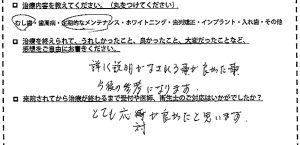 治療内容を教えてください。（丸をつけてください）
むし歯・歯周病・定期的なメンテナンス・ホワイトニング・歯列矯正・インプラント・入れ歯・その他
治療を終えられて、うれしかったこと、良かったこと、大変だったことなど、
感想をご自由にお書きください。
詳く説明がなされる事が良かった事
今後の参考になります。
来院されてから治療が終わるまで受付や医師、衛生士のご対応はいかがでしたか？
とても応対が良かったと思います。